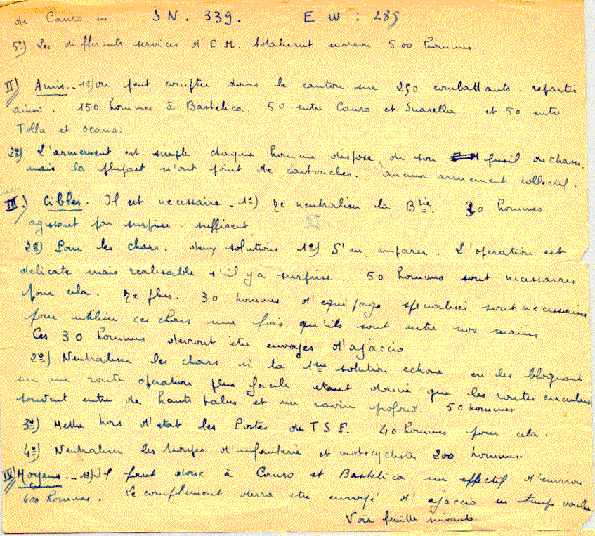 de Cauro en S N. 339. E W : 289
5º) Les différents services d'E.M. totalisent environ 500 hommes
II) Amis. 1º) on peut compter dans le canton sur 250 combattants répartis
ainsi : 150 hommes à Bastelica. 50 entre Cauro et Suarella et 50 entre
Tolla et Ocana.
2º) L'armement est simple chaque homme dispose de son fusil de chasse
mais la plupart n'ont point de cartouches. aucun armement collectif.
III) Cibles. Il est nécessaire. 1º) De neutraliser la Btie. 30 hommes
agissant par surprise suffisent
2º) Pour les chars. deux solutions 1º) S'en emparer. L'opération est
délicate mais réalisable s'il y a surprise. 50 hommes sont nécessaires
pour cela. De plus. 30 hommes d'équipage spécialisés sont nécessaires
pour utiliser ces chars une fois qu'ils sont entre nos mains
Ces 30 hommes devront être envoyés d'ajaccio
2º) Neutraliser les chars si la 1ère solution échoue en les bloquant
sur une route opération plus facile étant donné que les routes
souvent entre de hauts talus et un ravin profond 50 hommes
3º) Mettre hors d'état les Postes de T.S.F. 40 hommes pour cela.
4º) Neutraliser les troupes d'infanterie et motocyclistes 200 hommes
IV) Moyens. 1º) Il faut donc à Cauro et Bastelica un effectif d'environ
400 hommes. Le complément devra être envoyé d'ajaccio en temps voulu
Voir feuille suivante